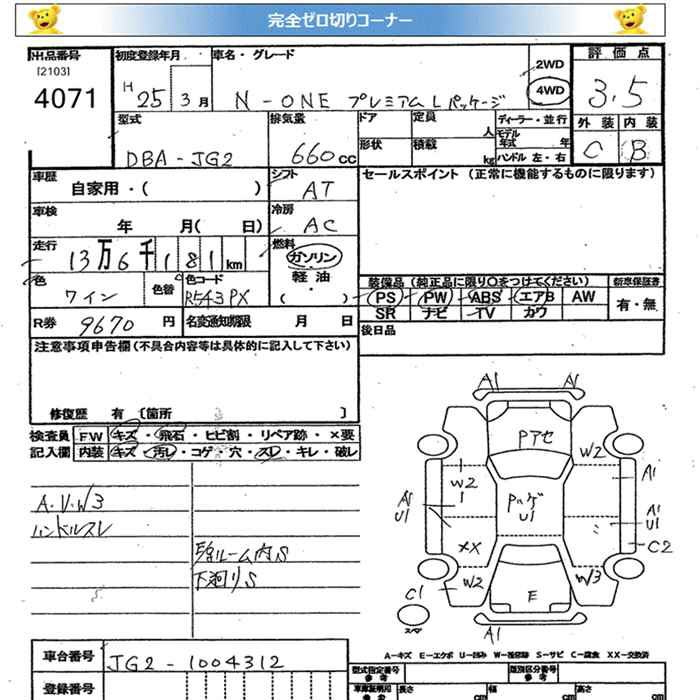 完全ゼロ切りコーナー
出品番号 初度登録年月 車名・グレード 2WD 評価点
[2103]
4071 H 25 3月 N-ONE プレミアムLパッケージ 4WD 3.5
型式 排気量 ドア 定員 人 ディーラー・並行 外装 内装
DBA-JG2 660cc 形状 積載 kg モデル年式 年 C B
ハンドル左・右
車歴 シフト セールスポイント (正常に機能するものに限ります)
自家用・( ) AT
車検 冷房
年 月( 日) AC
走行 燃料
13万6千181km ガソリン
軽油・( )
色 色替 色コード 装備品(純正品に限り○をつけてください) 新車保証書
ワイン R543PX PS PW ABS エアB AW 有・無
SR ナビ TV カワ
R券 9670円 名変通知期限 月 日 後日品
注意事項申告欄(不具合内容等は具体的に記入して下さい)
修復歴 有 〔箇所 〕
検査員 FW キズ・飛石・ヒビ割・リペア跡・×要
記入欄 内装 キズ・汚レ・コゲ・穴・スレ・キレ・破レ
A.U.W3
ハンドルスレ
ルーム内S
下廻りS
A1 A1
Pアセ
W2
W2 1 A1
A1 U1 Pハゲ U1 A1 U1
XX C2
W2 W3
C1 E
スペア
A1
A-キズ E-エクボ U-凹み W-補修跡 S-サビ C-腐食 XX-交換済
車台番号 JG2-1004312 型式指定番号 参考 類別区分番号 参考
登録番号 車庫証明用 参考 長さ cm 幅 cm 高さ cm